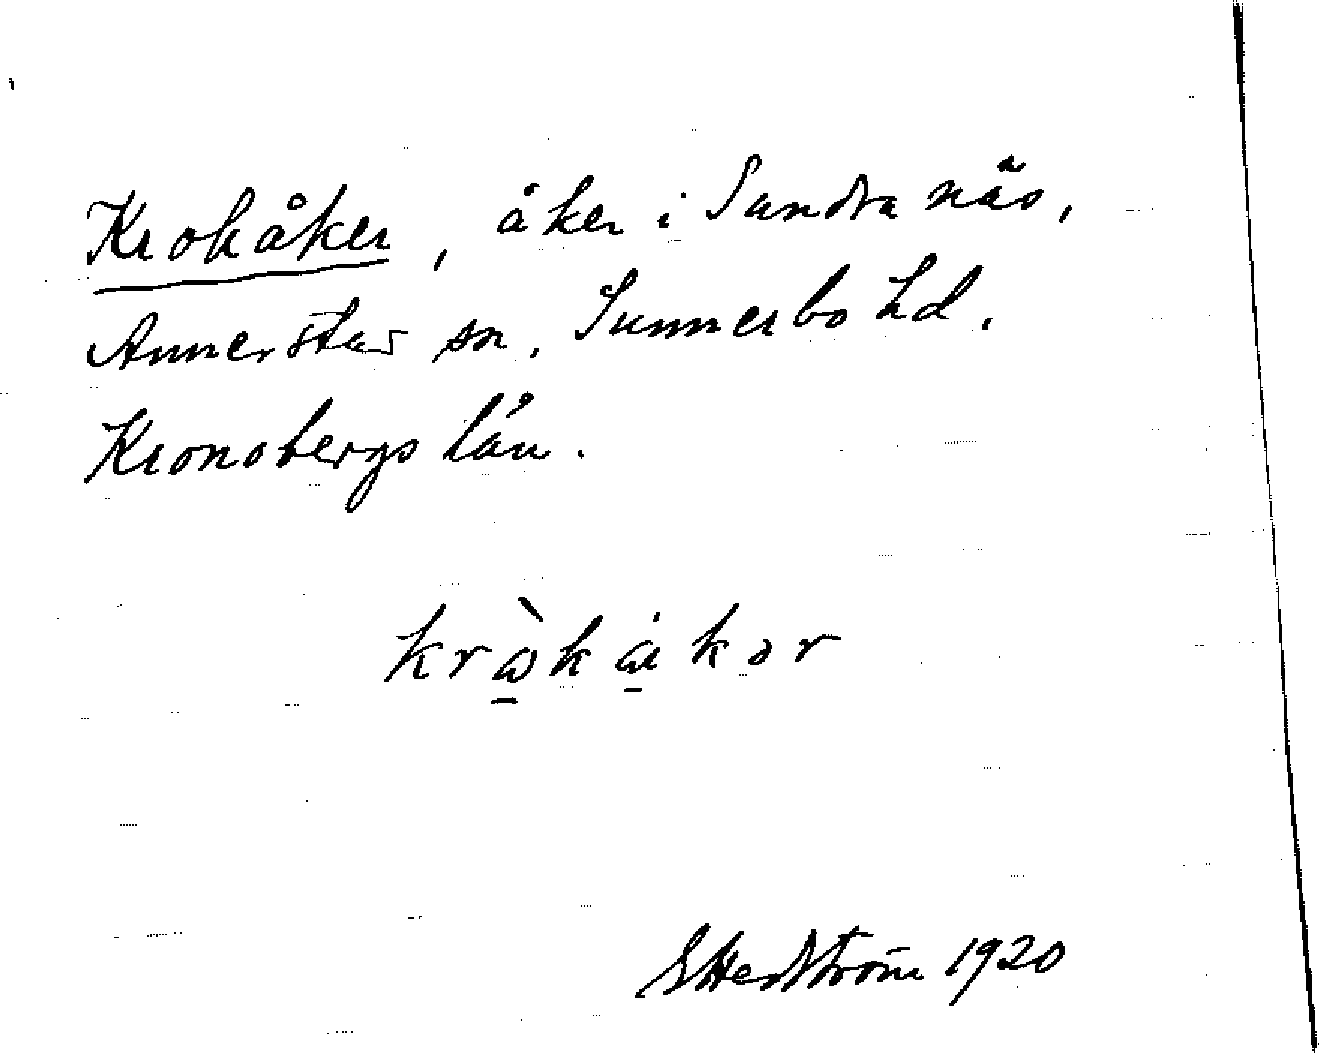 Krokåker, åker i Sundranäs,
Annerstad sn, Sunnerbo hd,
Kronobergs län.
kròkåkər
G Hedström 1920